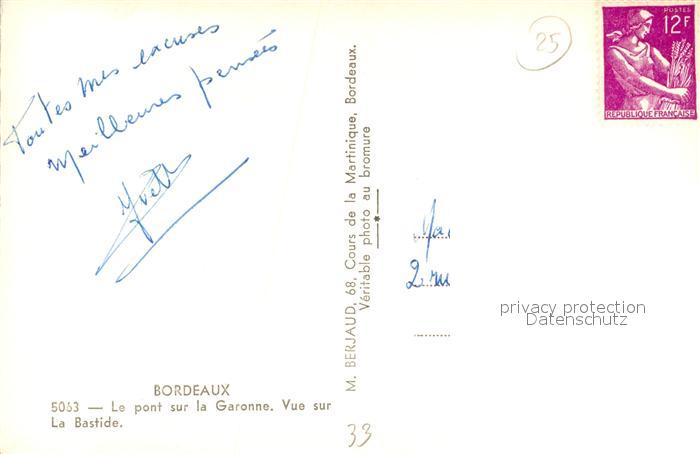 Toutes mes excuses
Meilleures pensées
Yvett
BORDEAUX
5063 — Le pont sur la Garonne. Vue sur
La Bastide.
M. BERJAUD, 68, Cours de la Martinique, Bordeaux.
Véritable photo au bromure
25
POSTES
12F
REPUBLIQUE FRANÇAISE
2 ru
privacy protection
Datenschutz
33